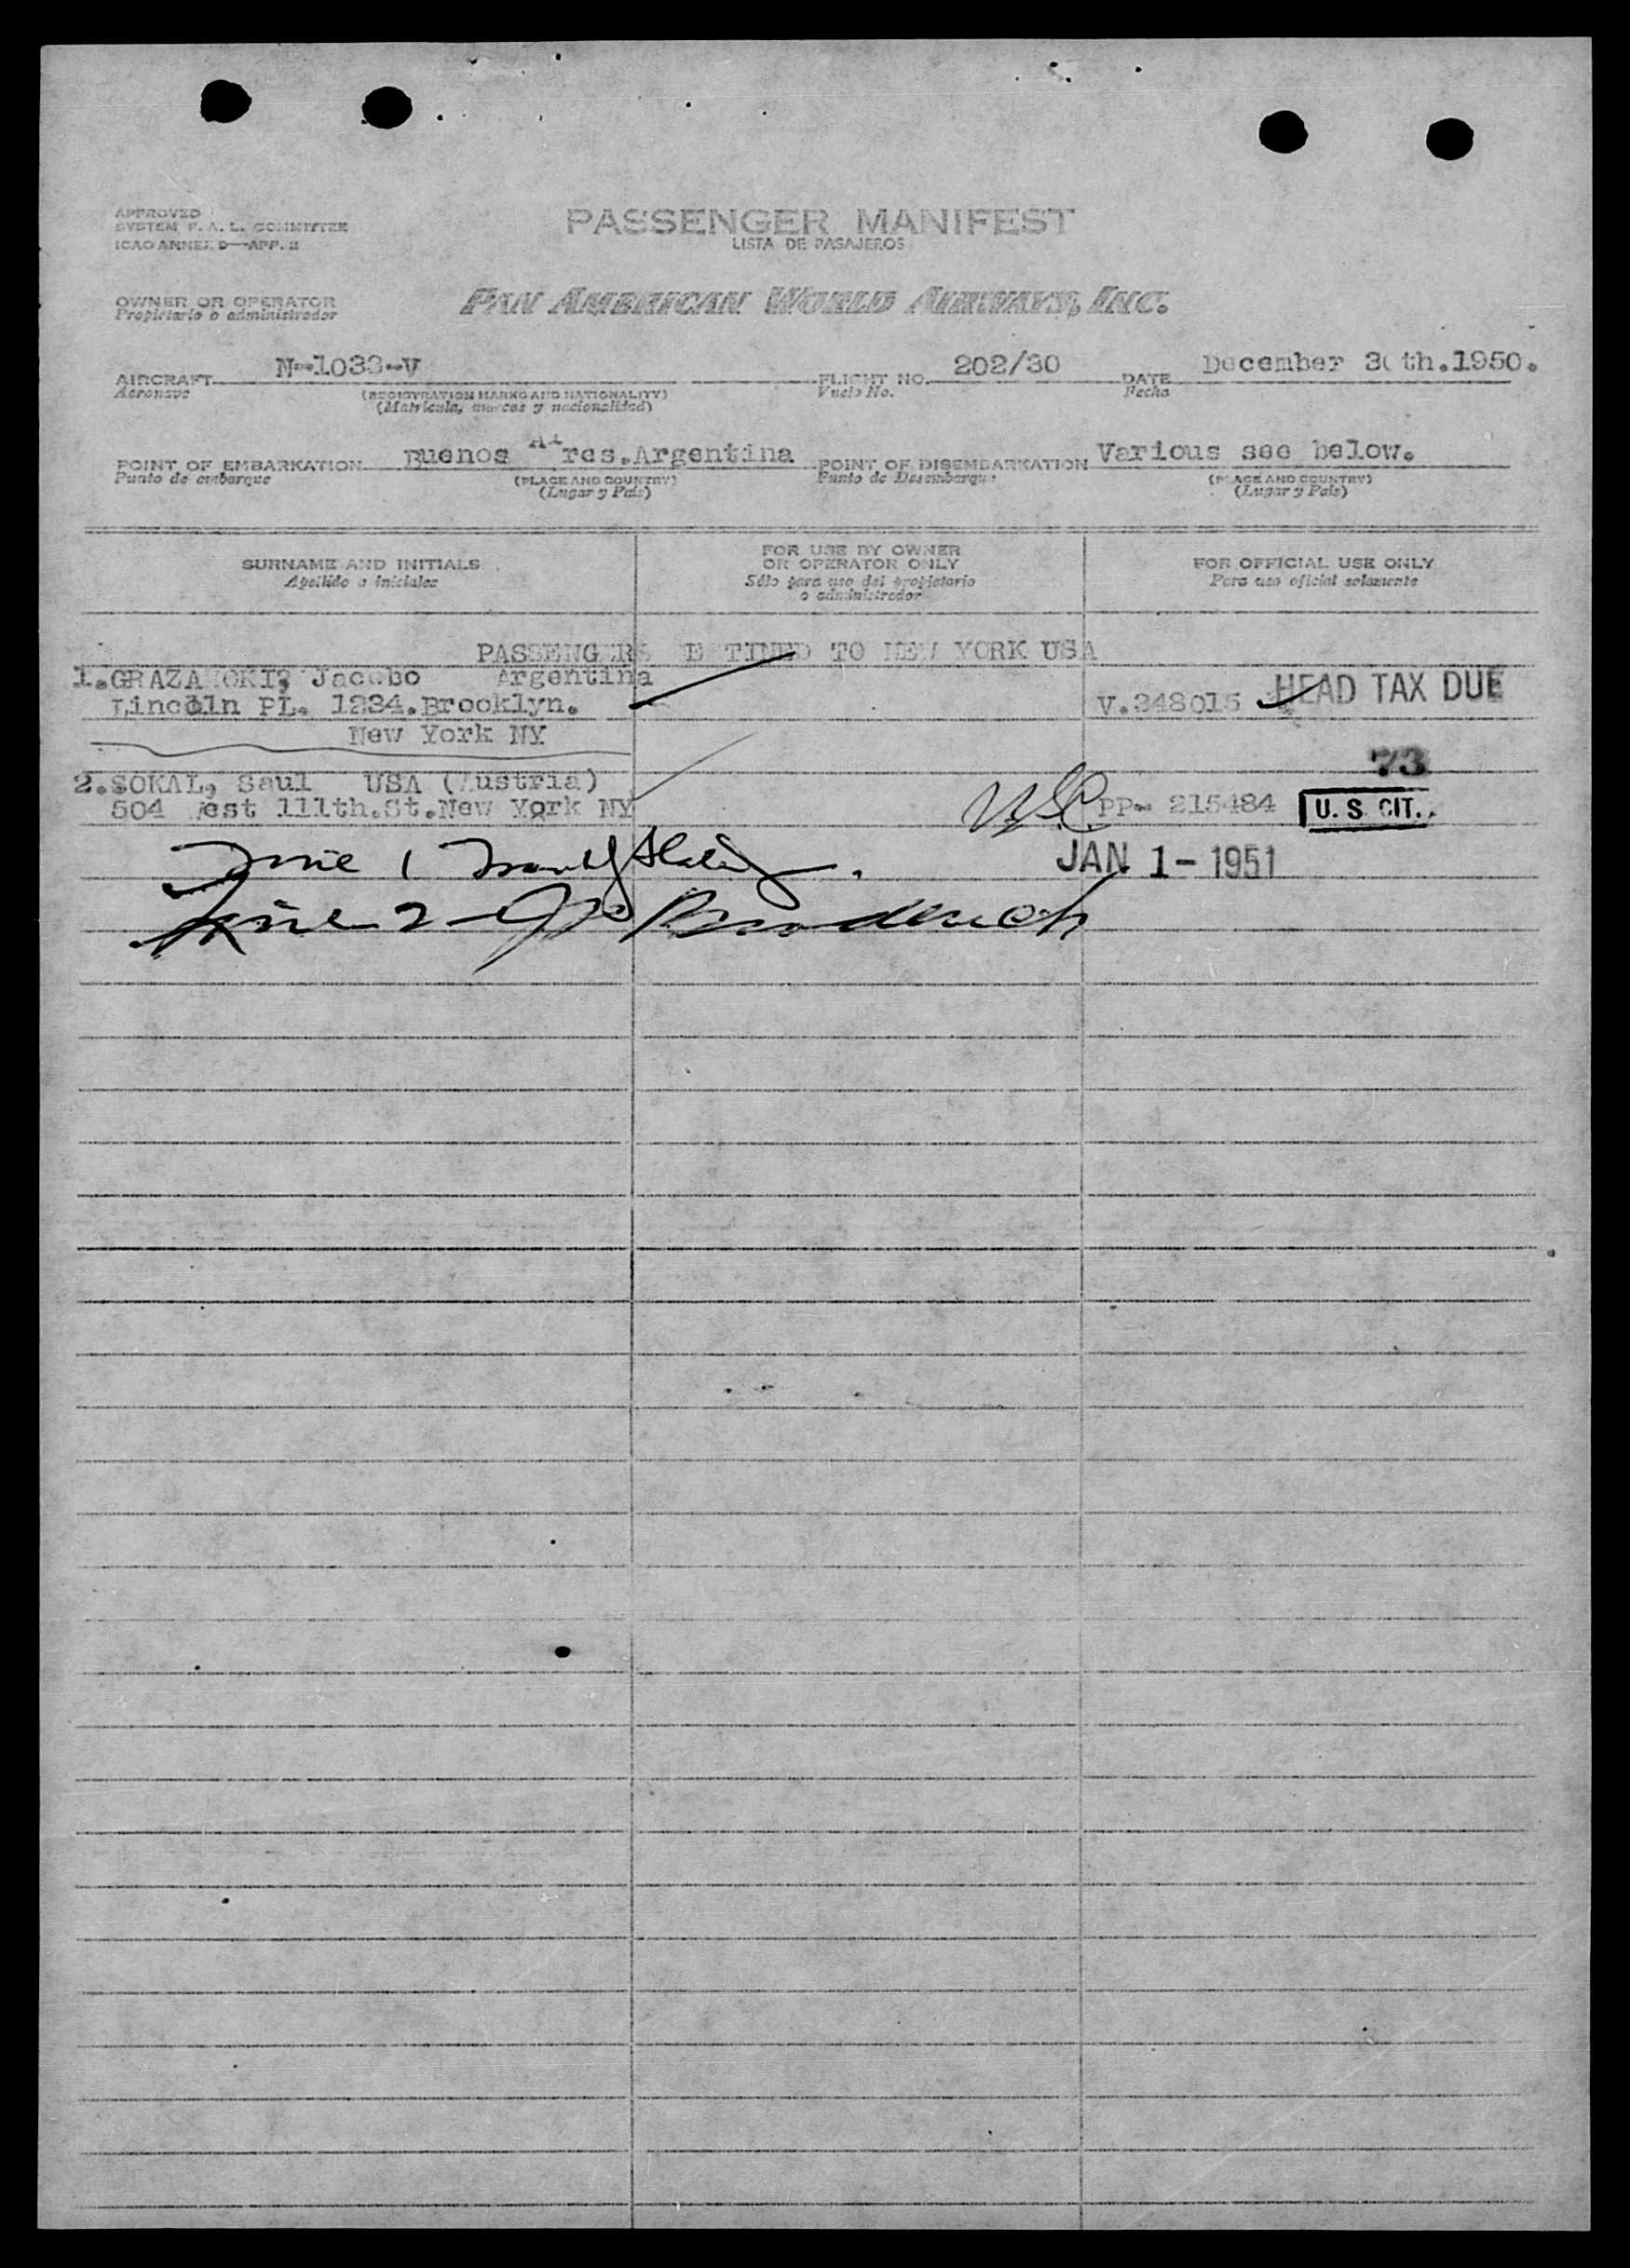 APPROVED
SYSTEM F. A. L. COMMITTEE
ICAO ANNEX 9—APP. B
PASSENGER MANIFEST
LISTA DE PASAJEROS
OWNER OR OPERATOR
Propietario o administrador
PAN AMERICAN WORLD AIRWAYS, INC.
AIRCRAFT N-1033-V
Aeronave
(REGISTRATION MARKS AND NATIONALITY)
(Matricula, marcas y nacionalidad)
FLIGHT NO. 202/30
Vuelo No.
DATE December 30th.1950.
Fecha
POINT OF EMBARKATION Buenos Aires.Argentina
Punto de embarque
(PLACE AND COUNTRY)
(Lugar y País)
POINT OF DISEMBARKATION Various see below.
Punto de Desembarque
(PLACE AND COUNTRY)
(Lugar y País)
SURNAME AND INITIALS
Apellido e iniciales
FOR USE BY OWNER
OR OPERATOR ONLY
Sólo para uso del propietario
o administrador
FOR OFFICIAL USE ONLY
Para uso oficial solamente
PASSENGERS DESTINED TO NEW YORK USA
1. Jacobo Argentina
Lincoln PL. 1234.Brooklyn.
New York NY
V.348015 HEAD TAX DUE
73
2.SOKAL, Saul USA (Austria)
504 West 111th.St.New York NY
PP- 215484 U. S. CIT.
JAN 1 - 1951
Line 1
Line 2 - Broderick